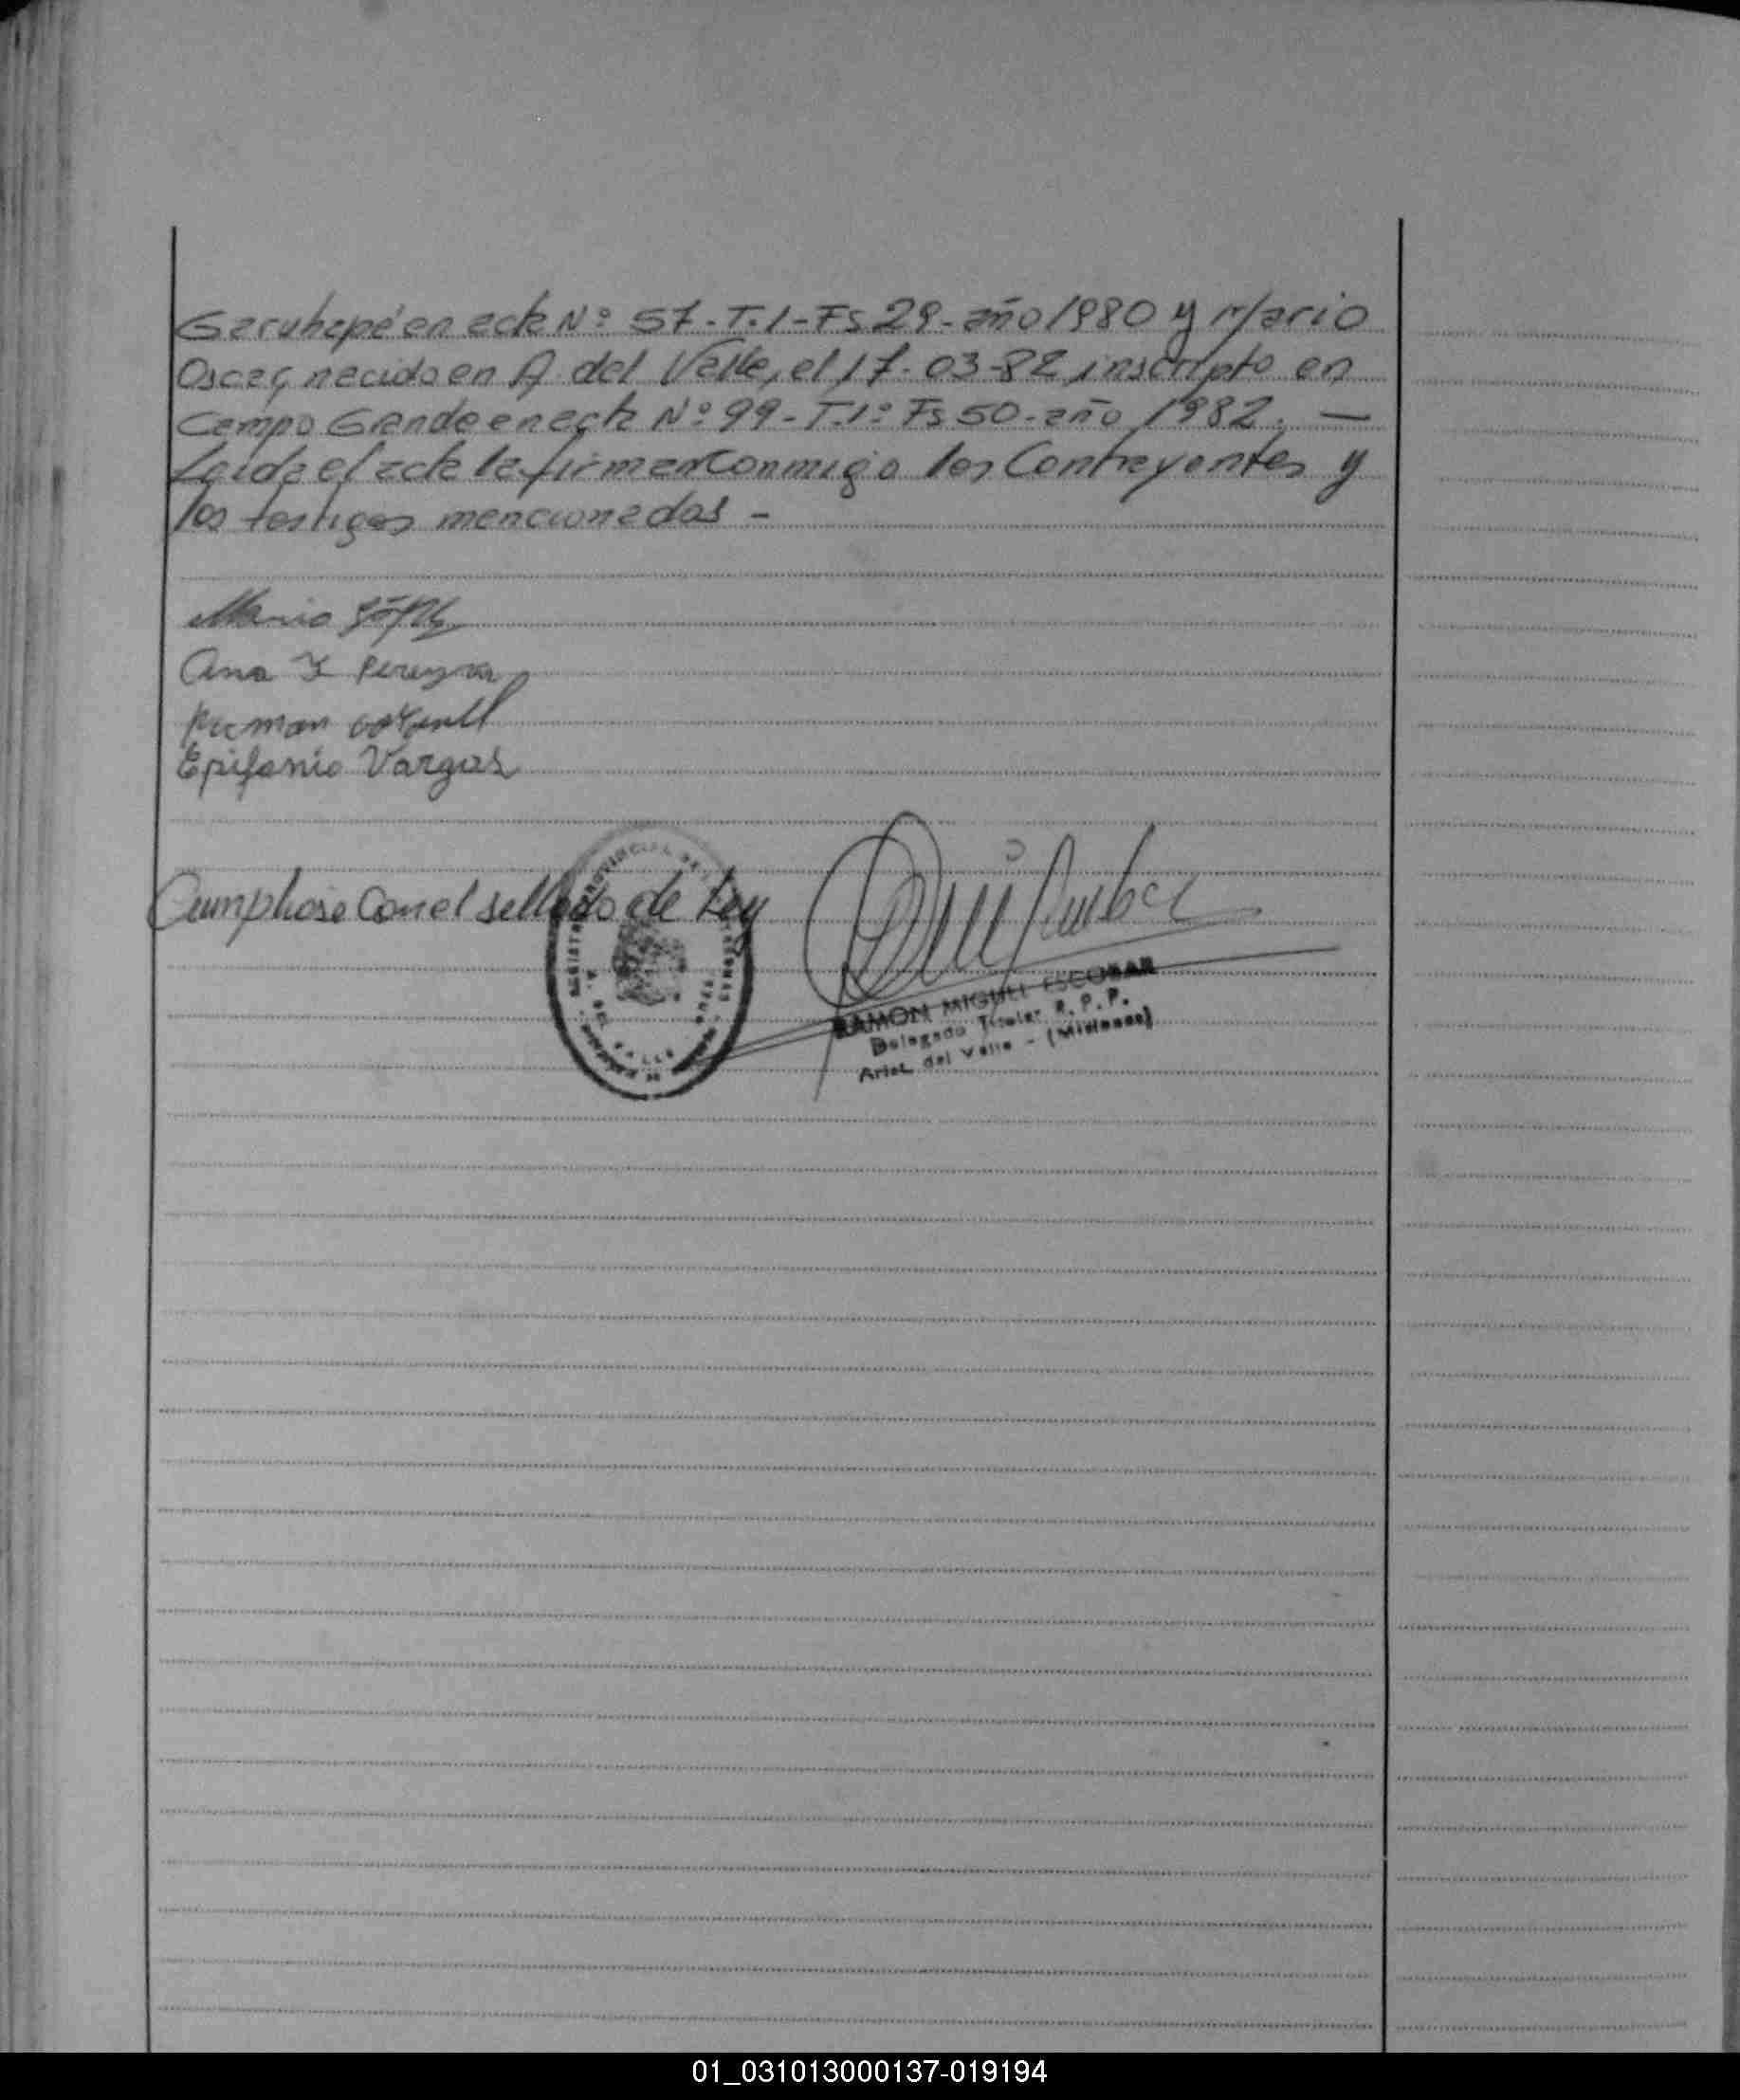 Garuhapé en acta Nº 57-T.1-Fs 29-año 1980 y Mario
Oscar, nacido en A. del Valle, el 17-03-82 inscripto en
Campo Grande en acta Nº 99-T.1º Fs 50-año 1982. —
Leida el acta la firman conmigo los Contrayentes y
los testigos mencionados -
Mario
Ana Y Pereyra
Epifanio Vargas
Cumpliose Con el sellado de Ley
RAMON MIGUEL ESCOBAR
Delegado Titular R. P. P.
Arist. del Valle - (Misiones)
01_031013000137-019194